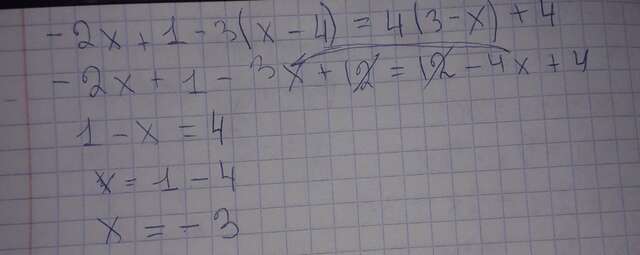 -2x+1-3(x-4)=4(3-x)+4
-2x+1-3x+12=12-4x+4
1-x=4
x=1-4
x=-3